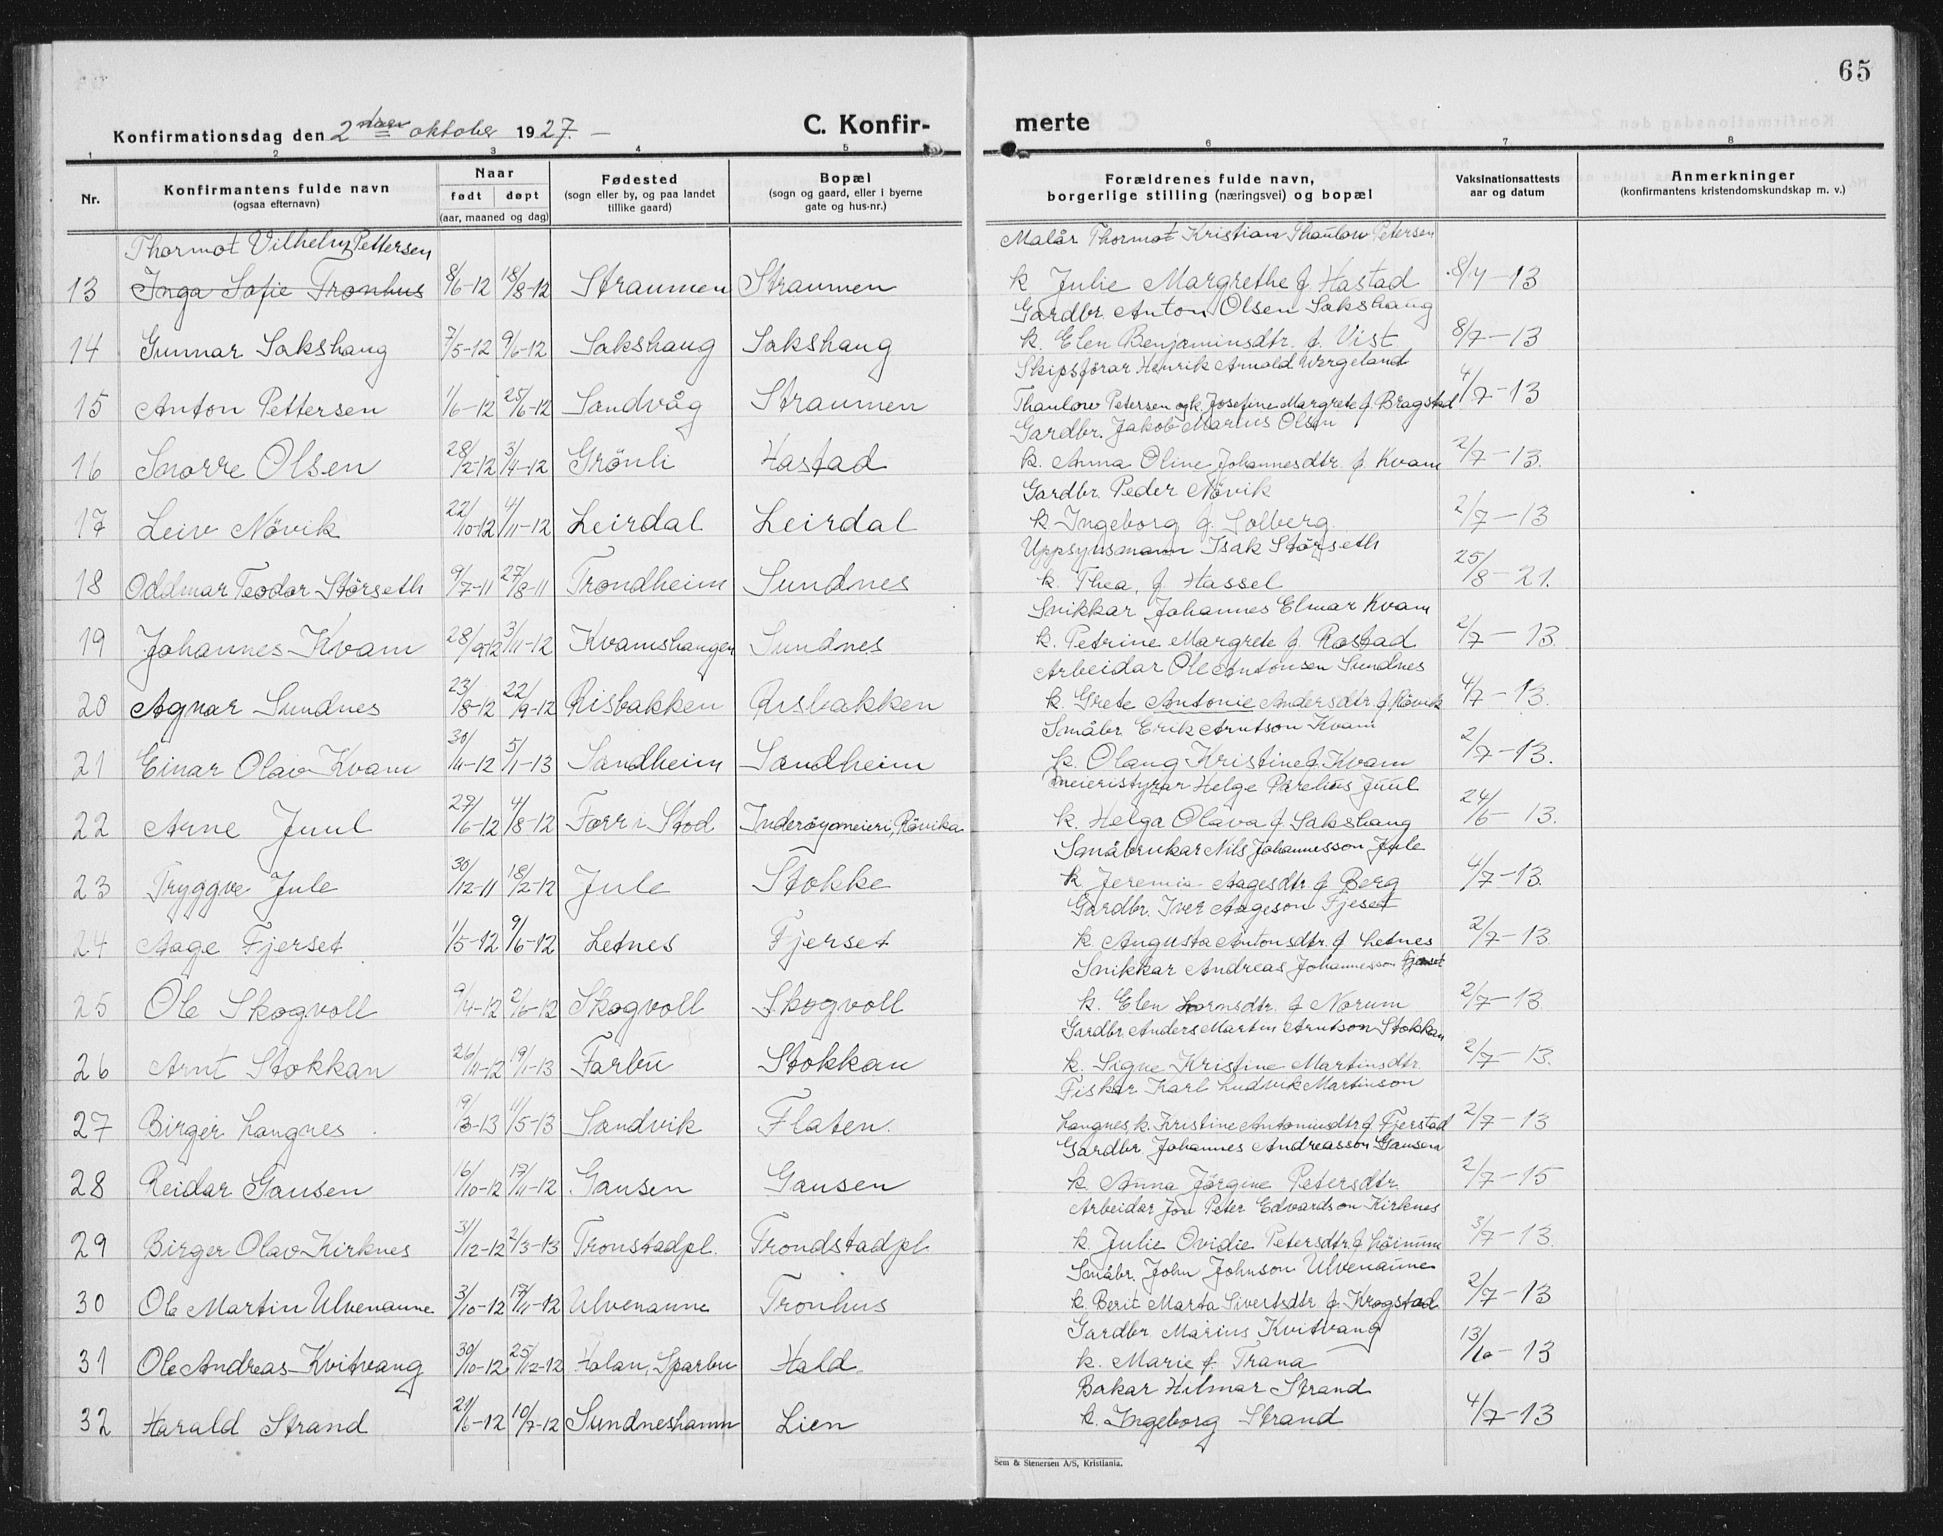 65
Konfirmationsdag den 2den oktober 1927. –
C. Konfir-
merte
1 2 3 4 5 6 7 8
Nr.
Konfirmantens fulde navn
(ogsaa efternavn)
Naar
født døpt
(aar, maaned og dag)
Fødested
(sogn eller by, og paa landet
tillike gaard)
Bopæl
(sogn og gaard, eller i byerne
gate og hus-nr.)
Forældrenes fulde navn,
borgerlige stilling (næringsvei) og bopæl
Vaksinationsattests
aar og datum
Anmerkninger
(konfirmantens kristendomskundskap m. v.)
Thormot Vilhelm Pettersen Malår Thormot Kristian Thaulow Petersen
13 Inga Sofie Tronhus 8/6-12 18/8-12 Straumen Straumen k Julie Margrethe f. Hastad 8/7-13
Gardbr. Anton Olsen Sakshaug
14 Gunnar Sakshaug 7/5-12 9/6-12 Sakshaug Sakshaug k. Elen Benjaminsdtr. f. Vist 8/7-13
Skipsförar Henrik Arnold Wergeland
15 Anton Pettersen 1/6-12 25/6-12 Sandvåg Straumen Thaulow Petersen og k. Josefine Margrete f. Bragstad 4/7-13
Gardbr. Jakob Marius Olsen
16 Snorre Olsen 28/2-12 3/4-12 Grönli Hastad k. Anna Oline Johannesdtr. f Kvam 2/7-13.
Gardbr. Peder Növik
17 Leiv Növik 22/10-12 4/11-12 Leirdal Leirdal k Ingeborg f. Solberg 2/7-13
Uppsynsmann Isak Störseth
18 Oddmar Teodor Störseth 9/7-11 27/8-11 Trondheim Sundnes k. Thea, f. Hassel 25/8-21.
Snikkar Johannes Elmar Kvam
19 Johannes Kvam 28/9-12 3/11-12 Kvamshangen Sundnes k. Petrine Margrete f. Rostad 2/7-13.
Arbeidar Ole Antonsen Sundnes
20 Agnar Sundnes 23/8-12 22/9-12 Risbakken Risbakken k. Grete Antonie Andersdtr. f. Rövik 4/7-13.
Småbr. Erik Arntson Kvam
21 Einar Olav Kvam 30/11-12 5/1-13 Sandheim Sandheim k. Olaug Kristine f. Kvam 2/7-13.
Meieristyrar Helge Parelius Juul
22 Arne Juul 27/6-12 4/8-12 Forr i Stod Inderöymeieri, Rövika k. Helga Olava f. Sakshaug 24/6-13.
Småbrukar Nils Johannesson Jule
23 Tryggve Jule 30/12-11 18/2-12 Jule Stokke k Jeremia Aagesdtr f Berg 4/7-13.
Gardbr. Iver Aageson Fjeset
24 Aage Fjerset 1/5-12 9/6-12 Letnes Fjerset k. Augusta Antonsdtr. f Letnes 2/7-13.
Snikkar Andreas Johannesson
25 Ole Skogvoll 9/4-12 2/6-12 Skogvoll Skogvoll k. Elen f Norum 2/7-13.
Gardbr. Anders Martin Arntson Stokkan
26 Arnt Stokkan 26/11-12 19/1-13 Farbu Stokkan k. Signe Kristine Martinsdtr. 2/7-13.
Fiskar Karl Ludvik Martinson
27 Birger Langnes 19/3-13 11/5-13 Sandvik Flaten. Langnes k. Kristine Antoniusdtr f Fjerstad 2/7-13
Gardbr. Johannes Andreasson Gausen
28 Reidar Gausen 16/10-12 17/11-12 Gausen Gausen k. Anna Jörgine Petersdtr. 2/7-15
Arbeidar Jon Peter Edvardson Kirknes
29 Birger Olav Kirknes 31/12-12 2/3-13 Tronstadpl. Trondstadpl. k. Julie Ovidie Petersdtr. f Löinum 3/7-13.
Småbr. John Johnson Ulvenaune
30 Ole Martin Ulvenaune 3/10-12 17/11-12 Ulvenaune Tronhus k. Berit Marta Sivertsdtr f. Krogstad 2/7-13
Gardbr. Marius Kvitvang
31 Ole Andreas Kvitvang 30/10-12 25/12-12 Holan, Sparbu Hald k. Marie f. Trana 13/10-13
Bakar Hilmar Strand
32 Harald Strand 21/6-12 10/7-12 Sundneshamn Lien k. Ingeborg Strand 4/7-13
Sem & Stenersen A/S, Kristiania.